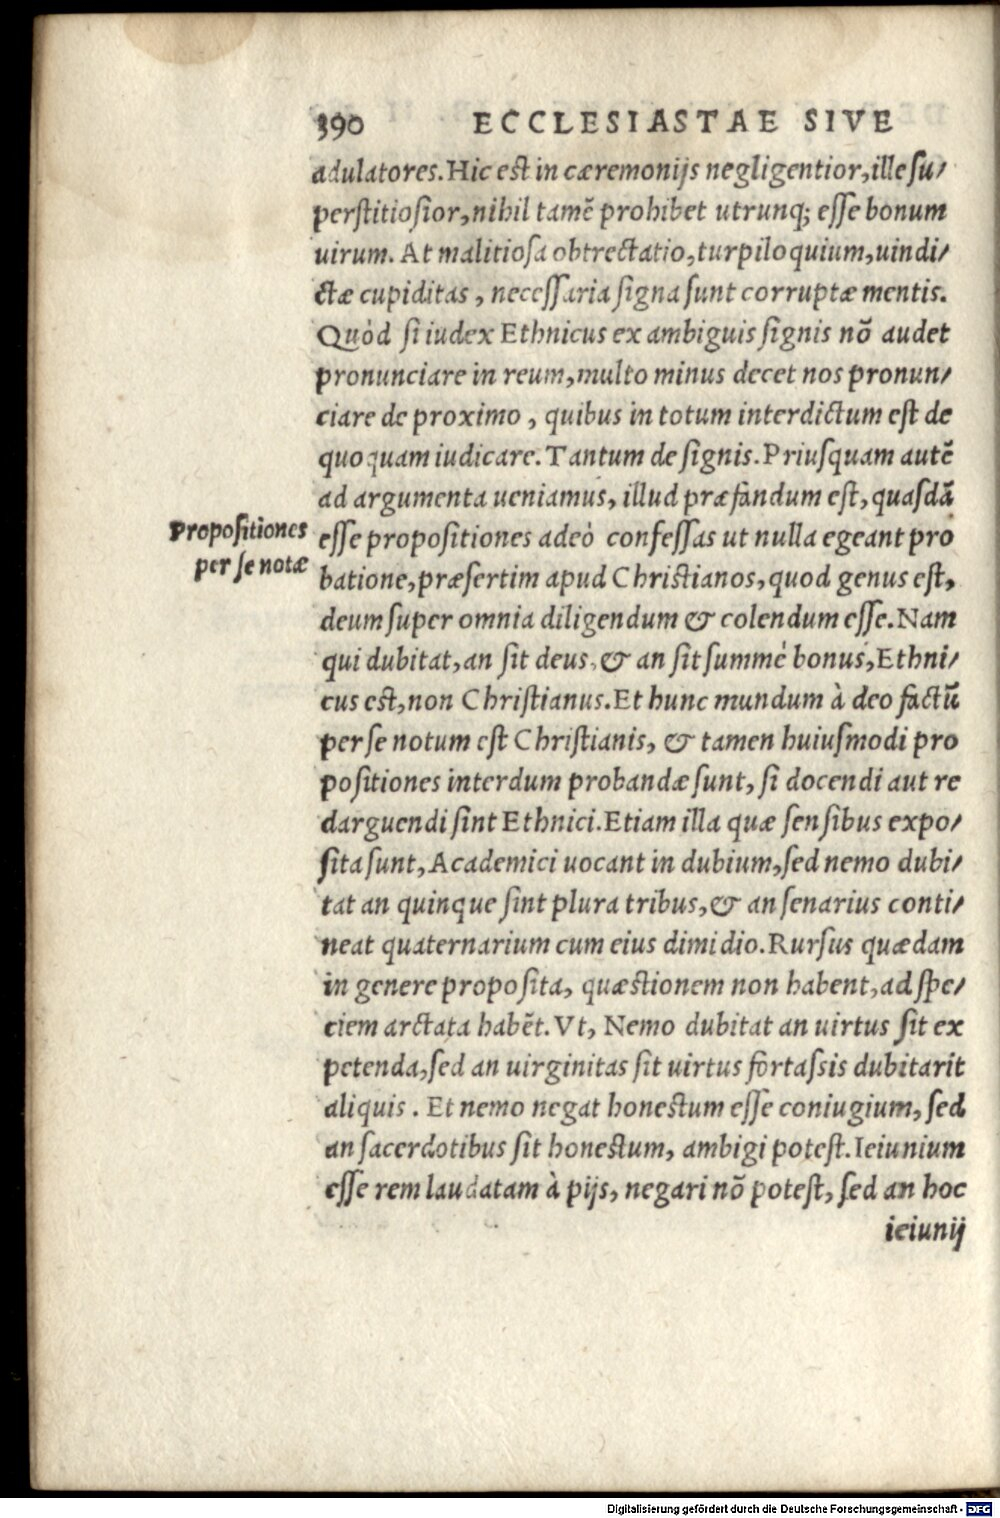 390 ECCLESIASTAE SIVE
adulatores. Hic est in cæremonijs negligentior, ille su/
perstitiosior, nihil tamẽ prohibet utrunq; esse bonum
uirum. At malitiosa obtrectatio, turpiloquium, uindi/
ctæ cupiditas, necessaria signa sunt corruptæ mentis.
Quòd si iudex Ethnicus ex ambiguis signis nõ audet
pronunciare in reum, multo minus decet nos pronun/
ciare de proximo, quibus in totum interdictum est de
quoquam iudicare. Tantum de signis. Priusquam autẽ
ad argumenta ueniamus, illud præfandum est, quasdã
Propositiones
per se notæ
esse propositiones adeò confessas ut nulla egeant pro
batione, præsertim apud Christianos, quod genus est,
deum super omnia diligendum & colendum esse. Nam
qui dubitat, an sit deus, & an sit summè bonus, Ethni/
cus est, non Christianus. Et hunc mundum à deo factũ
per se notum est Christianis, & tamen huiusmodi pro
positiones interdum probandæ sunt, si docendi aut re
darguendi sint Ethnici. Etiam illa quæ sensibus expo/
sita sunt, Academici uocant in dubium, sed nemo dubi/
tat an quinque sint plura tribus, & an senarius conti/
neat quaternarium cum eius dimidio. Rursus quædam
in genere proposita, quæstionem non habent, ad spe/
ciem arctata habẽt. Vt, Nemo dubitat an uirtus sit ex
petenda, sed an uirginitas sit uirtus fortassis dubitarit
aliquis. Et nemo negat honestum esse coniugium, sed
an sacerdotibus sit honestum, ambigi potest. Ieiunium
esse rem laudatam à pijs, negari nõ potest, sed an hoc
ieiunij
Digitalisierung gefördert durch die Deutsche Forschungsgemeinschaft - DFG